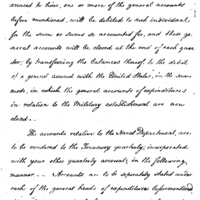 armed to him, one or more of the general accounts
before mentioned, will be debited to such individual
for the sum or sums so accounted for, and these ge-
neral accounts will be closed at the end of each quar-
ter, by transferring the balances thereof to the debit
of a general account with the United States, in the same
mode, in which the general accounts of expenditures
in relation to the Military establishment are now
closed.
The accounts relative to the Naval Department, are
to be rendered to the Treasury quarterly, incorporated
with your other quarterly accounts, in the following
manner. Accounts are to be separately stated under
each of the general heads of expenditures beforementioned